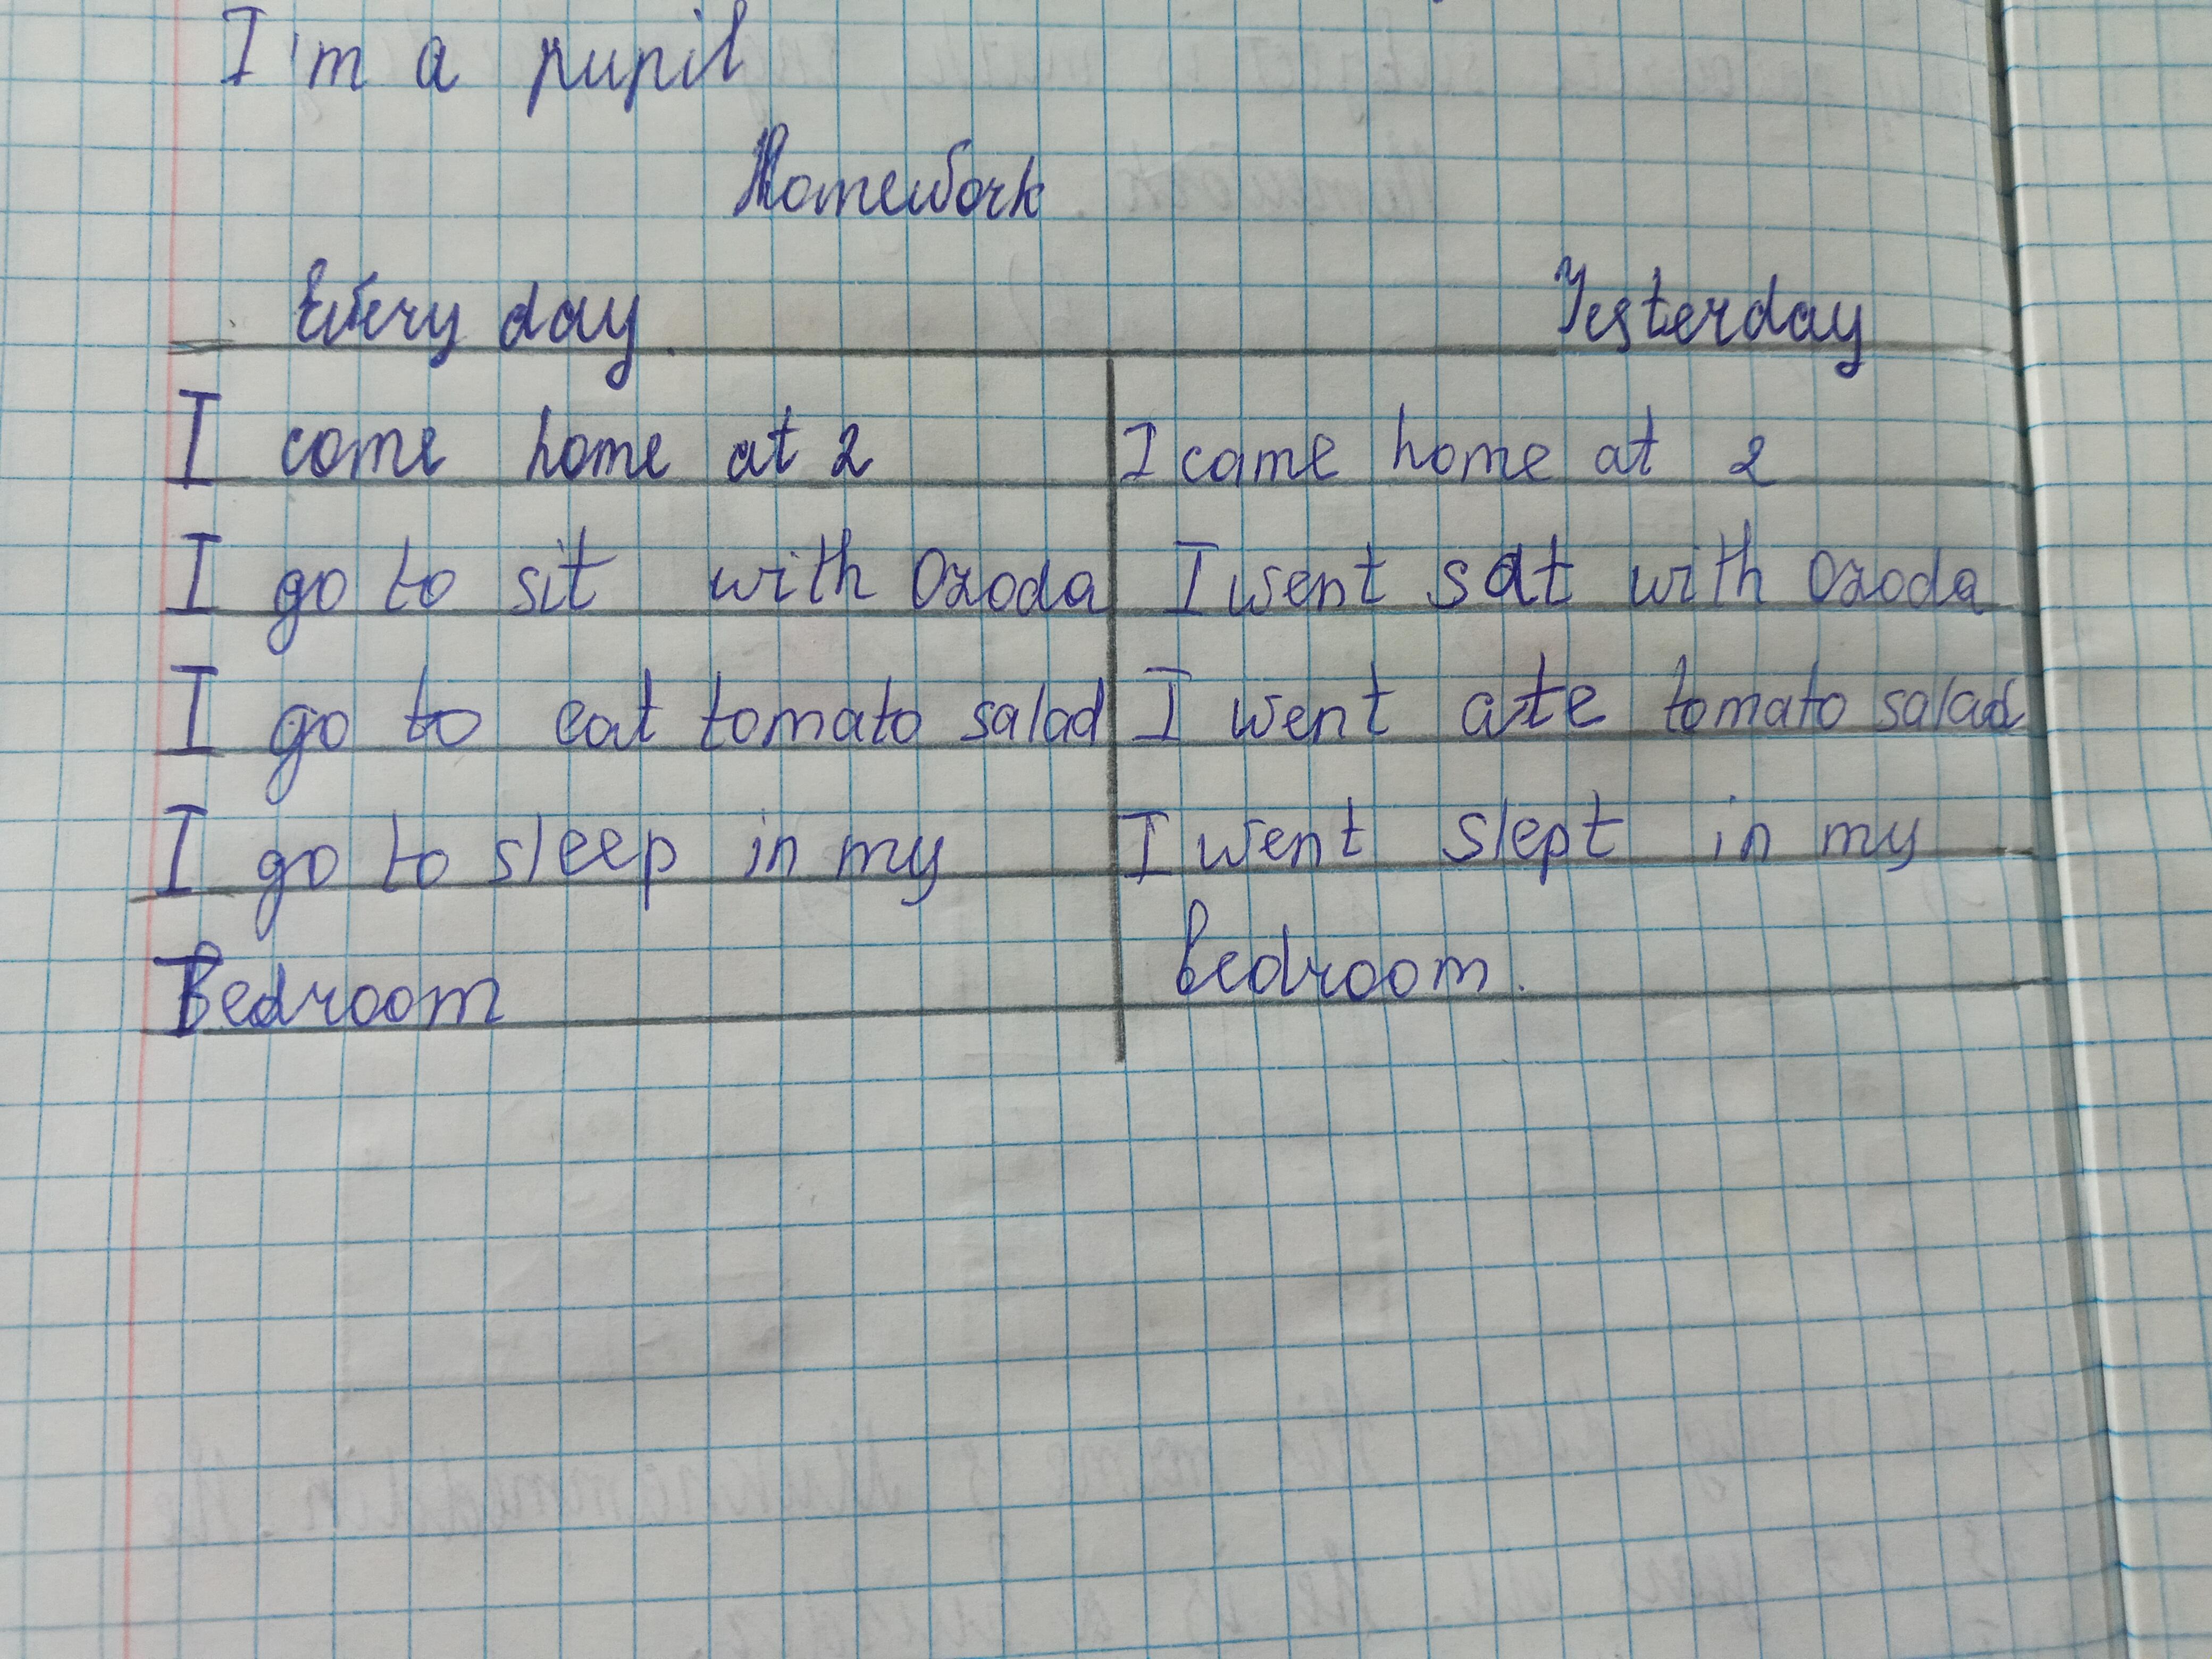 I'm a pupil
Homework
Every day. Yesterday
I come home at 2 I came home at 2
I go to sit with Ozoda I went sat with Ozoda
I go to eat tomato salad I went ate tomato salad
I go to sleep in my I went slept in my
Bedroom bedroom.